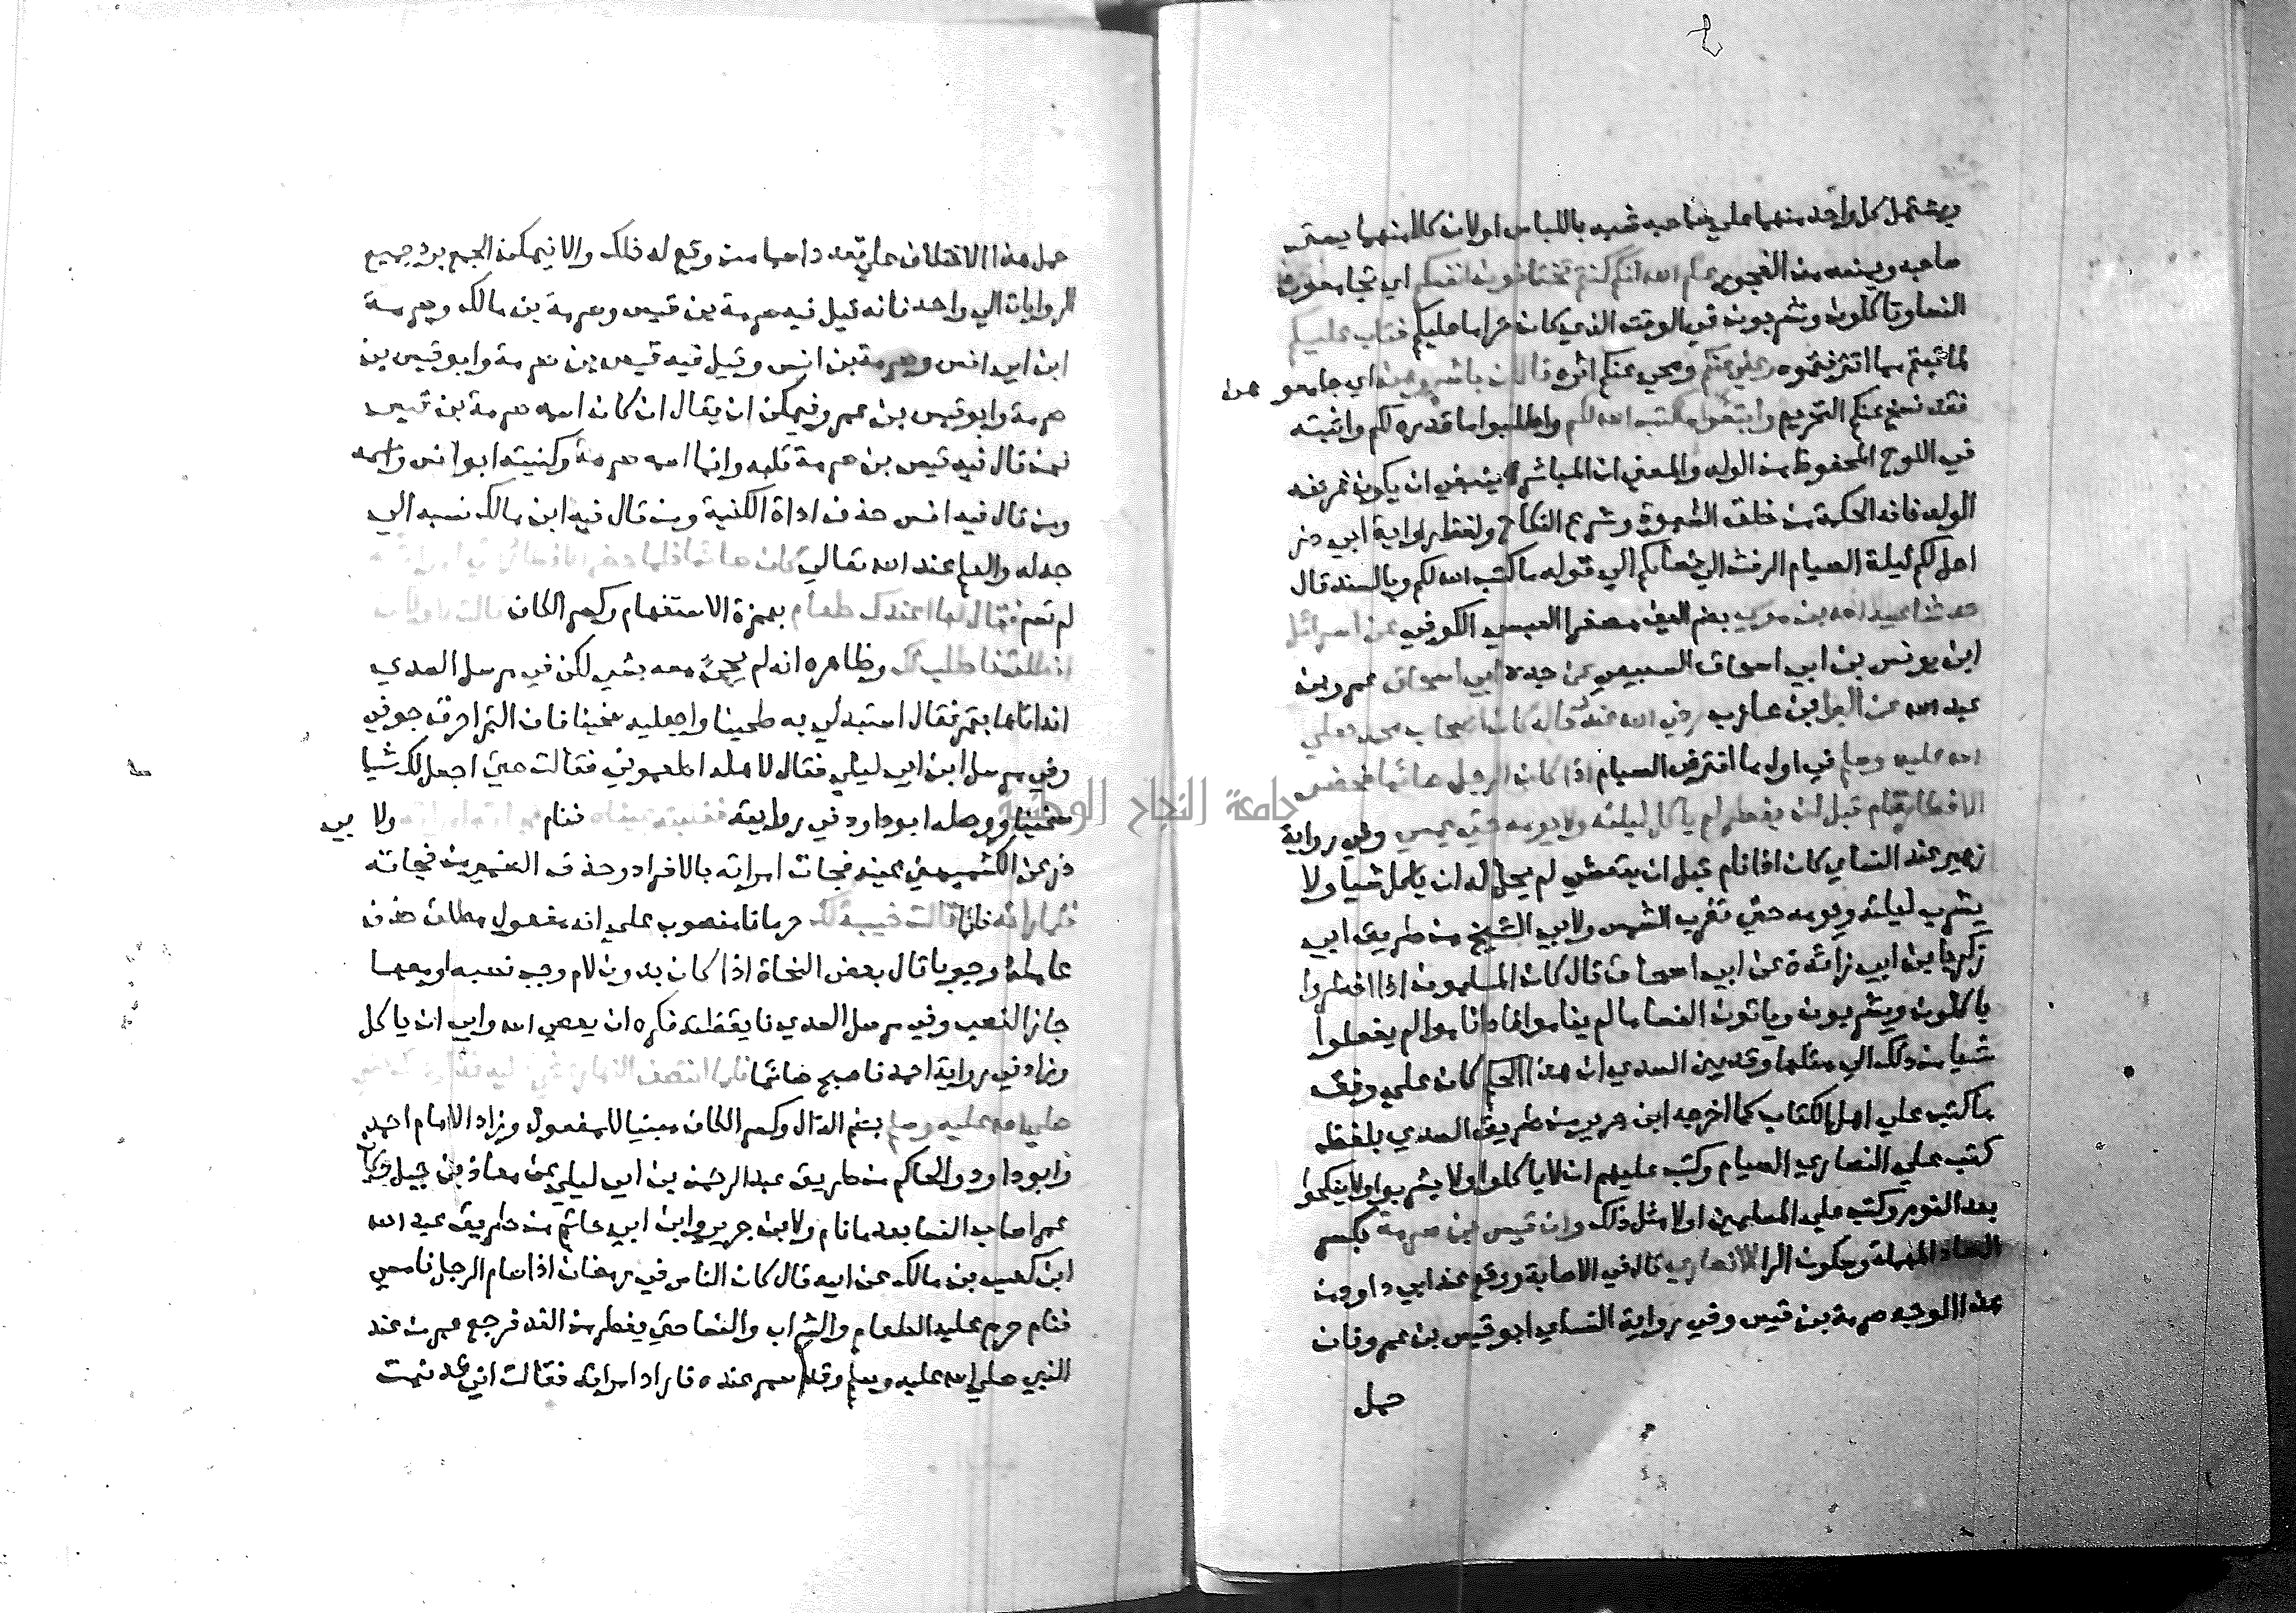 ويشتمل كل واحد منهما علي صاحبه شبه باللباس او لان كلا منهما يستر
صاحبه ويمنعه من الفجور علم الله انكم كنتم تختانون انفسكم اي تجامعون
النسا وتاكلون وتشربون في الوقت الذي كان حراما عليكم فتاب عليكم
لما تبتم مما اقترفتموه وعفي عنكم ومحي عنكم اثره فالان باشروهن اي جامعوهن
فقد نسخ عنكم التحريم وابتغوا ما كتب الله لكم واطلبوا ما قدره لكم واثبته
في اللوح المحفوظ من الولد والمعني ان المباشر ينبغي ان يكون غرضه
الولد فانه الحكمة من خلق الشهوة وشرع النكاح ولفظ رواية ابي ذر
احل لكم ليلة الصيام الرفث الي نسائكم الي قوله ما كتب الله لكم وبالسند قال
حدثنا عبيد الله بن موسي بضم العين مصغرا العبسي الكوفي عن اسرائل
ابن يونس بن ابي اسحاق السبيعي عن جده ابي اسحاق عمرو بن
عبد الله عن البرا بن عازب رضي الله عنه قال كان اصحاب محمد صلي
الله عليه وسلم في اول ما افترض الصيام اذا كان الرجل صائما فحضر
الافطار فنام قبل ان يفطر لم ياكل ليلته ولا يومه حتي يمسي وفي رواية
زهير عند النساي كان اذا نام قبل ان يتعشي لم يحل له ان ياكل شيا ولا
يشرب ليلته ويومه حتي تغرب الشمس ولابي الشيخ من طريق ابي
زكريا بن ابي زائدة عن ابي اسحاق قال كان المسلمون اذا افطروا
ياكلون ويشربون وياتون النسا ما لم يناموا فاذا ناموا لم يفعلوا
شيا من ذلك الي مثلها وقد بين السدي ان هذا الحكم كان علي وفق
ما كتب علي اهل الكتاب كما اخرجه ابن جرير من طريق السدي بلفظ
كتب علي النصاري الصيام وكتب عليهم ان لا ياكلوا ولا يشربوا ولا ينكحوا
بعد النوم وكتب علي المسلمين اولا مثل ذلك وان قيس بن صرمة بكسر
الصاد المهملة وسكون الرا الانصاري قال في الاصابة ووقع عند ابي داود من
هذا الوجه صرمة بن قيس وفي رواية النساي ابو قيس بن عمرو فان
حمل
حمل هذا الاختلاف علي تعدد اسما من وقع له ذلك والا فيمكن الجمع برد جميع
الروايات الي واحد فانه قيل فيه صرمة بن قيس وصرمة بن مالك وصرمة
ابن ابي انس وصرمة بن انس وقيل فيه قيس بن صرمة وابو قيس بن
صرمة وابو قيس بن عمرو فيمكن ان يقال ان كان اسمه صرمة بن قيس
فمن قال فيه قيس بن صرمة قلبه وانما اسمه صرمة وكنيته ابو انس
ومن قال فيه انس حذف اداة الكنية ومن قال فيه ابن مالك نسبه الي
جد له والعلم عند الله تعالي كان صائما فلما حضر الافطار
لم تصم فقال لها اعندك طعام بهمزة الاستفهام وكسر الكاف قالت لا
انطلق فاطلب لك وظاهره انه لم يجئ معه بشي لكن في مرسل السدي
انه اتاها بتمر فقال استبدلي به طحينا واجعليه سخينا فان التمر احرق جوفي
وفي مرسل ابن ابي ليلي فقال لاهله اطعموني فقالت حتي اجعل لك شيا
سخينا ووصله ابو داود في روايته فغلبته عيناه فنام ولا بي
ذر عن الكشميهني عينه فجات امراته بالافراد وحذف الضمير من فجاته
فلما راته نائما قالت خيبة لك حرمانا منصوب علي انه مفعول مطلق حذف
عامله وجوبا قال بعض النحاة اذا كان بدون لام وجب نصبه او معها
جاز النصب وفي مرسل السدي فايقظته فكره ان يعصي الله وابي ان ياكل
وزاد في رواية احمد فاصبح صائما فلما انتصف النهار
صلي الله عليه وسلم بضم الذال وكسر الكاف مبنيا للمفعول وزاد الامام احمد
وابو داود والحاكم من طريق عبد الرحمن بن ابي ليلي عن معاذ بن جبل وكان
عمر اصاب النسا بعد ما نام ولابن جرير وابن ابي حاتم من طريق عبد الله
ابن كعب بن مالك عن ابيه قال كان الناس في رمضان اذا صام الرجل فامسي
فنام حرم عليه الطعام والشراب والنسا حتي يفطر من الغد فرجع عمر من عند
النبي صلي الله عليه وسلم وقد سمر عنده فاراد امراته فقالت اني قد نمت
جامعة النجاح الوطنية